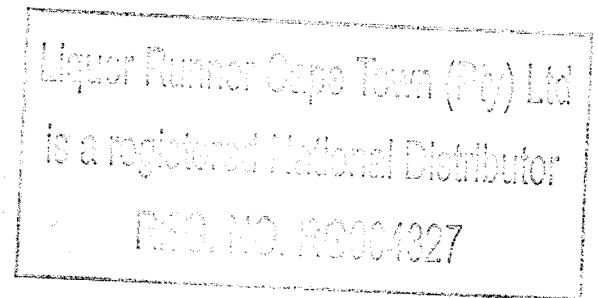 Liquor Runner Cape Town (Pty) Ltd
is a registered National Distributor
REG. NO. RG004327